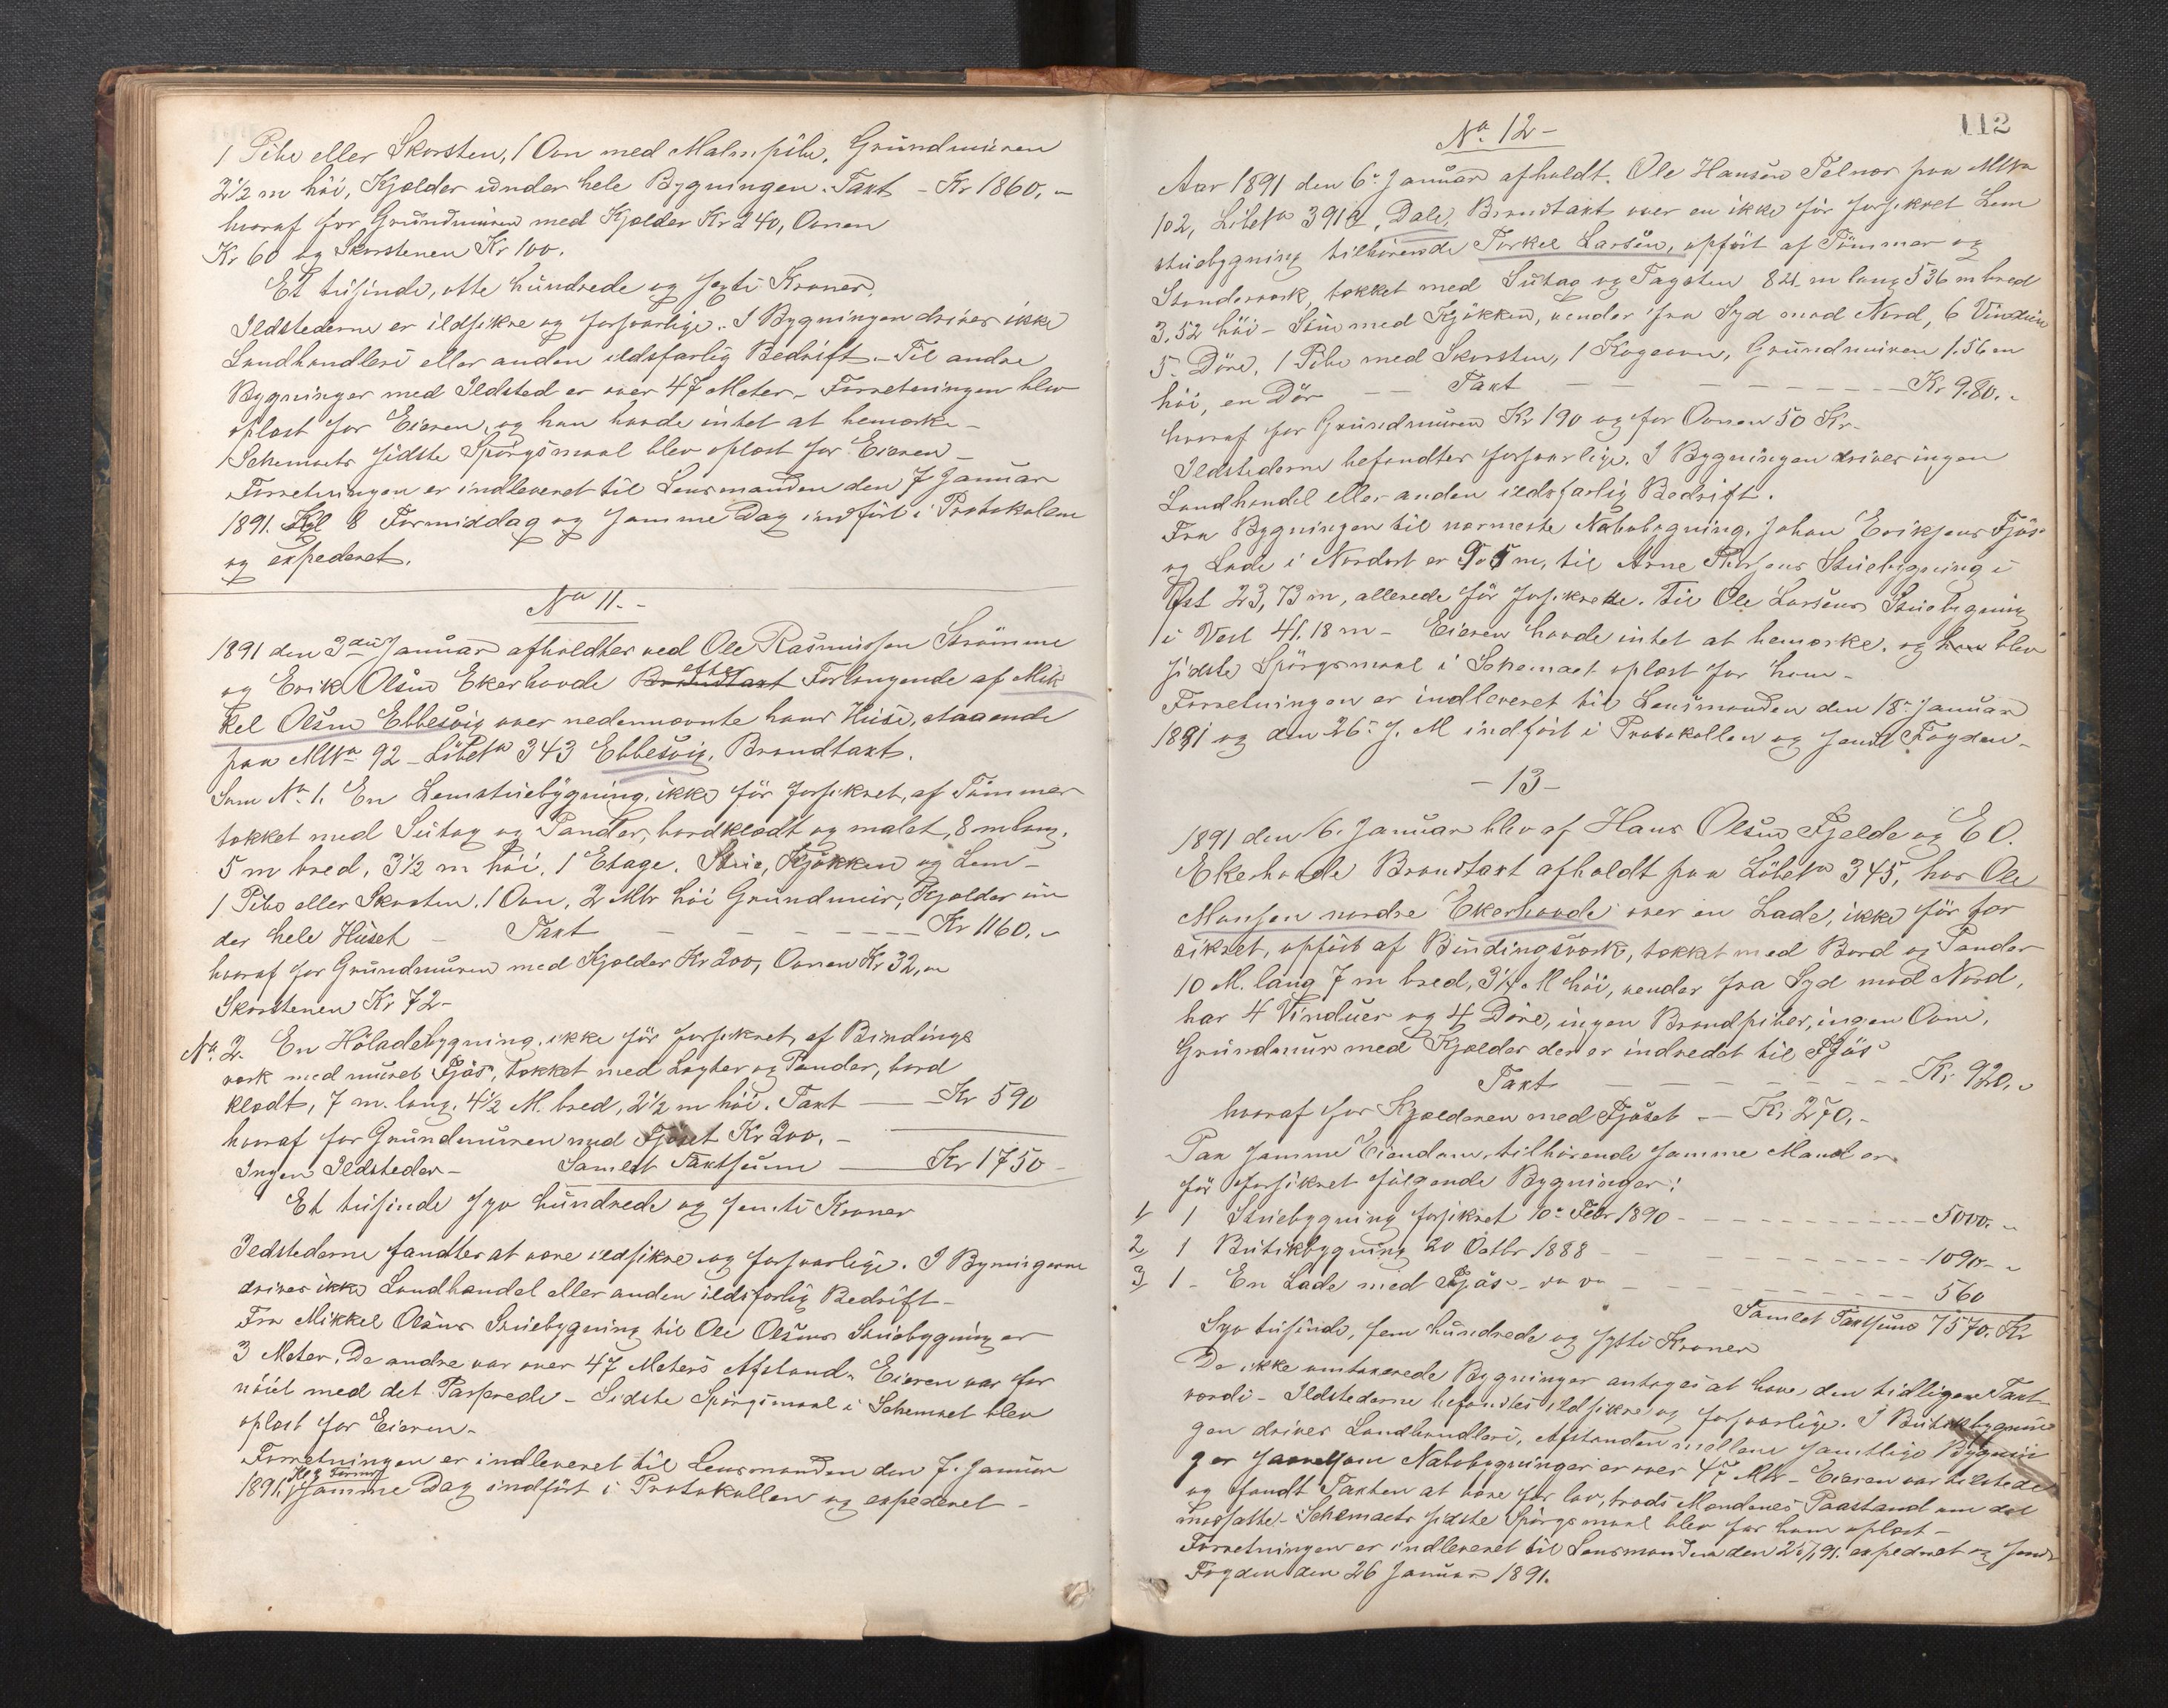 1 Pibe eller Skorsten, 1 Ovn med Malmpibe, Grundmuren
2½ m höi, Kjælder under hele Bygningen. Taxt - Kr 1860. "
hvoraf for Grundmuren med Kjælder Kr 240, Ovnen
Kr 60 og Skorstenen Kr 100.
Et tusinde, otte hundrede og sexti Kroner.
Ildstederne er ildsikre og forsvarlige. I Bygningen drives ikke
Landhandleri eller anden ildsfarlig Bedrift. - Til andre
Bygninger med Ildsted er over 47 Meter. - Forretningen blev
oplæst for Eieren, og han havde intet at bemærke -
Schemaets sidste Spörgsmaal blev oplæst for Eieren -
Forretningen er indleveret til Lensmanden den 7 Januar
1891. Kl 8 Formiddag og samme Dag indfört i Protokolen
og expederet.
No 11. -
1891 den 3die Januar afholdtes ved Ole Rasmussen Strömme
og Erik Olsen Ekerhovde Brandtaxt efter Forlangende af Mik
kel Olsen Ebbesvig over nedennævnte hans Huse, staaende
paa MNo 92 - LöbeNo 343 Ebbesvig. Brandtaxt.
Som No 1. En Lemstuebygning, ikke för forsikret, af Tömmer
tækket med Sutag og Pander, bordklædt og malet, 8 m lang,
5 m bred, 3½ m höi, 1 Etage. Stue, Kjökken og Lem -
1 Pibe eller Skorsten, 1 Ovn, 2 Mtr höi Grundmur, Kjælder un
der hele Huset - Taxt - - - - - - - Kr 1160. "
hvoraf for Grundmuren med Kjælder Kr 200, Ovnen Kr 32, "
Skorstenen Kr 72 -
No 2. En Höladebygning, ikke för forsikret, af Bindings
værk med muret Fjös, tækket med Lægter og Pander, bord
klædt, 7 m. lang, 4½ M. bred, 2½ m höi. Taxt — Kr 590
hvoraf for Grundmuren med Fjöset Kr 200. -
Ingen Ildsteder - Samlet Taxtsum — Kr 1750 -
Et tusinde syv hundrede og femti Kroner
Ildstederne fandtes at være ildsikre og forsvarlige. I Bygningerne
drives ikke Landhandel eller anden ildsfarlig Bedrift -
Fra Mikkel Olsens Stuebygning til Ole Olsens Stuebygning er
3 Meter. De andre var over 47 Meters Afstand. Eieren var for
nöiet med det Passerede - Sidste Spörgsmaal i Schemaet blev
oplæst for Eieren -
Forretningen er indleveret til Lensmanden den 7. Januar
1891. Kl 8 Formd samme Dag indfört i Protokollen og expederet -
112
No 12 -
Aar 1891 den 6. Januar afholdt Ole Hansen Telnæs paa MNo
102, LöbeNo 391a, Dale, Brandtaxt over en ikke för forsikret Lem
stuebygning tilhörende Torkel Larsen, opfört af Tömmer og
Standerværk, tækket med Sutag og Tagsten 8,21 m lang 5,36 m bred
3,52 höi - Stue med Kjökken, vender fra Syd mod Nord, 6 Vinduer
5 Döre, 1 Pibe med Skorsten, 1 Kogeovn, Grundmuren 1.56 m
höi, en Dör — Taxt — - - - - - - Kr 980. "
hvoraf for Grundmuren Kr 190 og for Ovnen 50 Kr.
Ildstederne befandtes forsvarlige. I Bygningen drives ingen
Landhandel eller anden ildsfarlig Bedrift.
Fra Bygningen til nærmeste Nabobygning, Johan Eriksens Fjös
og Lade i Nordost er m, til Arne Stuebygning i
Öst 23,73 m, allerede för forsikrede. Til Ole Larsens Stuebygning
i Vest 41.18 m - Eieren havde intet at bemærke, og blev
sidste Spörgsmaal i Schemaet oplæst for ham -
Forretningen er indleveret til Lensmanden den 18. Januar
1891 og den 26. J. M indfört i Protokollen og sendt Fogden -
- 13 -
1891 den 6. Januar blev af Hans Olsen Fjelde og E O.
Ekerhovde Brandtaxt afholdt paa LöbeNo 345, hos Ole
Monsen nordre Ekerhovde over en Lade, ikke för for
sikret, opfört af Bindingsværk, tækket med Bord og Pander
10 M. lang 7 m bred, 3¼ M höi, vender fra Syd mod Nord,
har 4 Vinduer og 4 Döre, ingen Brandpiber, ingen Ovne,
Grundmur med Kjælder der er indredet til Fjös
Taxt — - - - - - - Kr 920. "
hvoraf for Kjælderen med Fjöset — Kr 270. -
Paa samme Eiendom, tilhörende samme Mand er
för forsikret fölgende Bygninger:
1 1 Stuebygning forsikret 10. Febr 1890 - - - - - - - 5000. "
2 1 Butikbygning 20 Octbr 1888 - - - - - - - 1090 - "
3 1 - En Lade med Fjös - - - - - - - 560
Samlet Taxtsum 7570. Kr
Syv tusinde, fem hundrede og sytti Kroner
De ikke omtaxerede Bygninger antages at have den tidligere Taxt
værdi - Ildstederne befandtes ildsikre og forsvarlige. I Butikbygnin
gen drives Landhandleri, Afstanden mellem samtlige Bygnin
ger saavelsom Nabobygninger er over 47 Mtr - Eieren var tilstede
og fandt Taxten at være for lav, trods Mændenes Paastand om det
modsatte - Schemaets sidste Spörgsmaal blev for ham oplæst -
Forretningen er indleveret til Lensmanden den 91. expederet og sendt
Fogden den 26 Januar 1891.